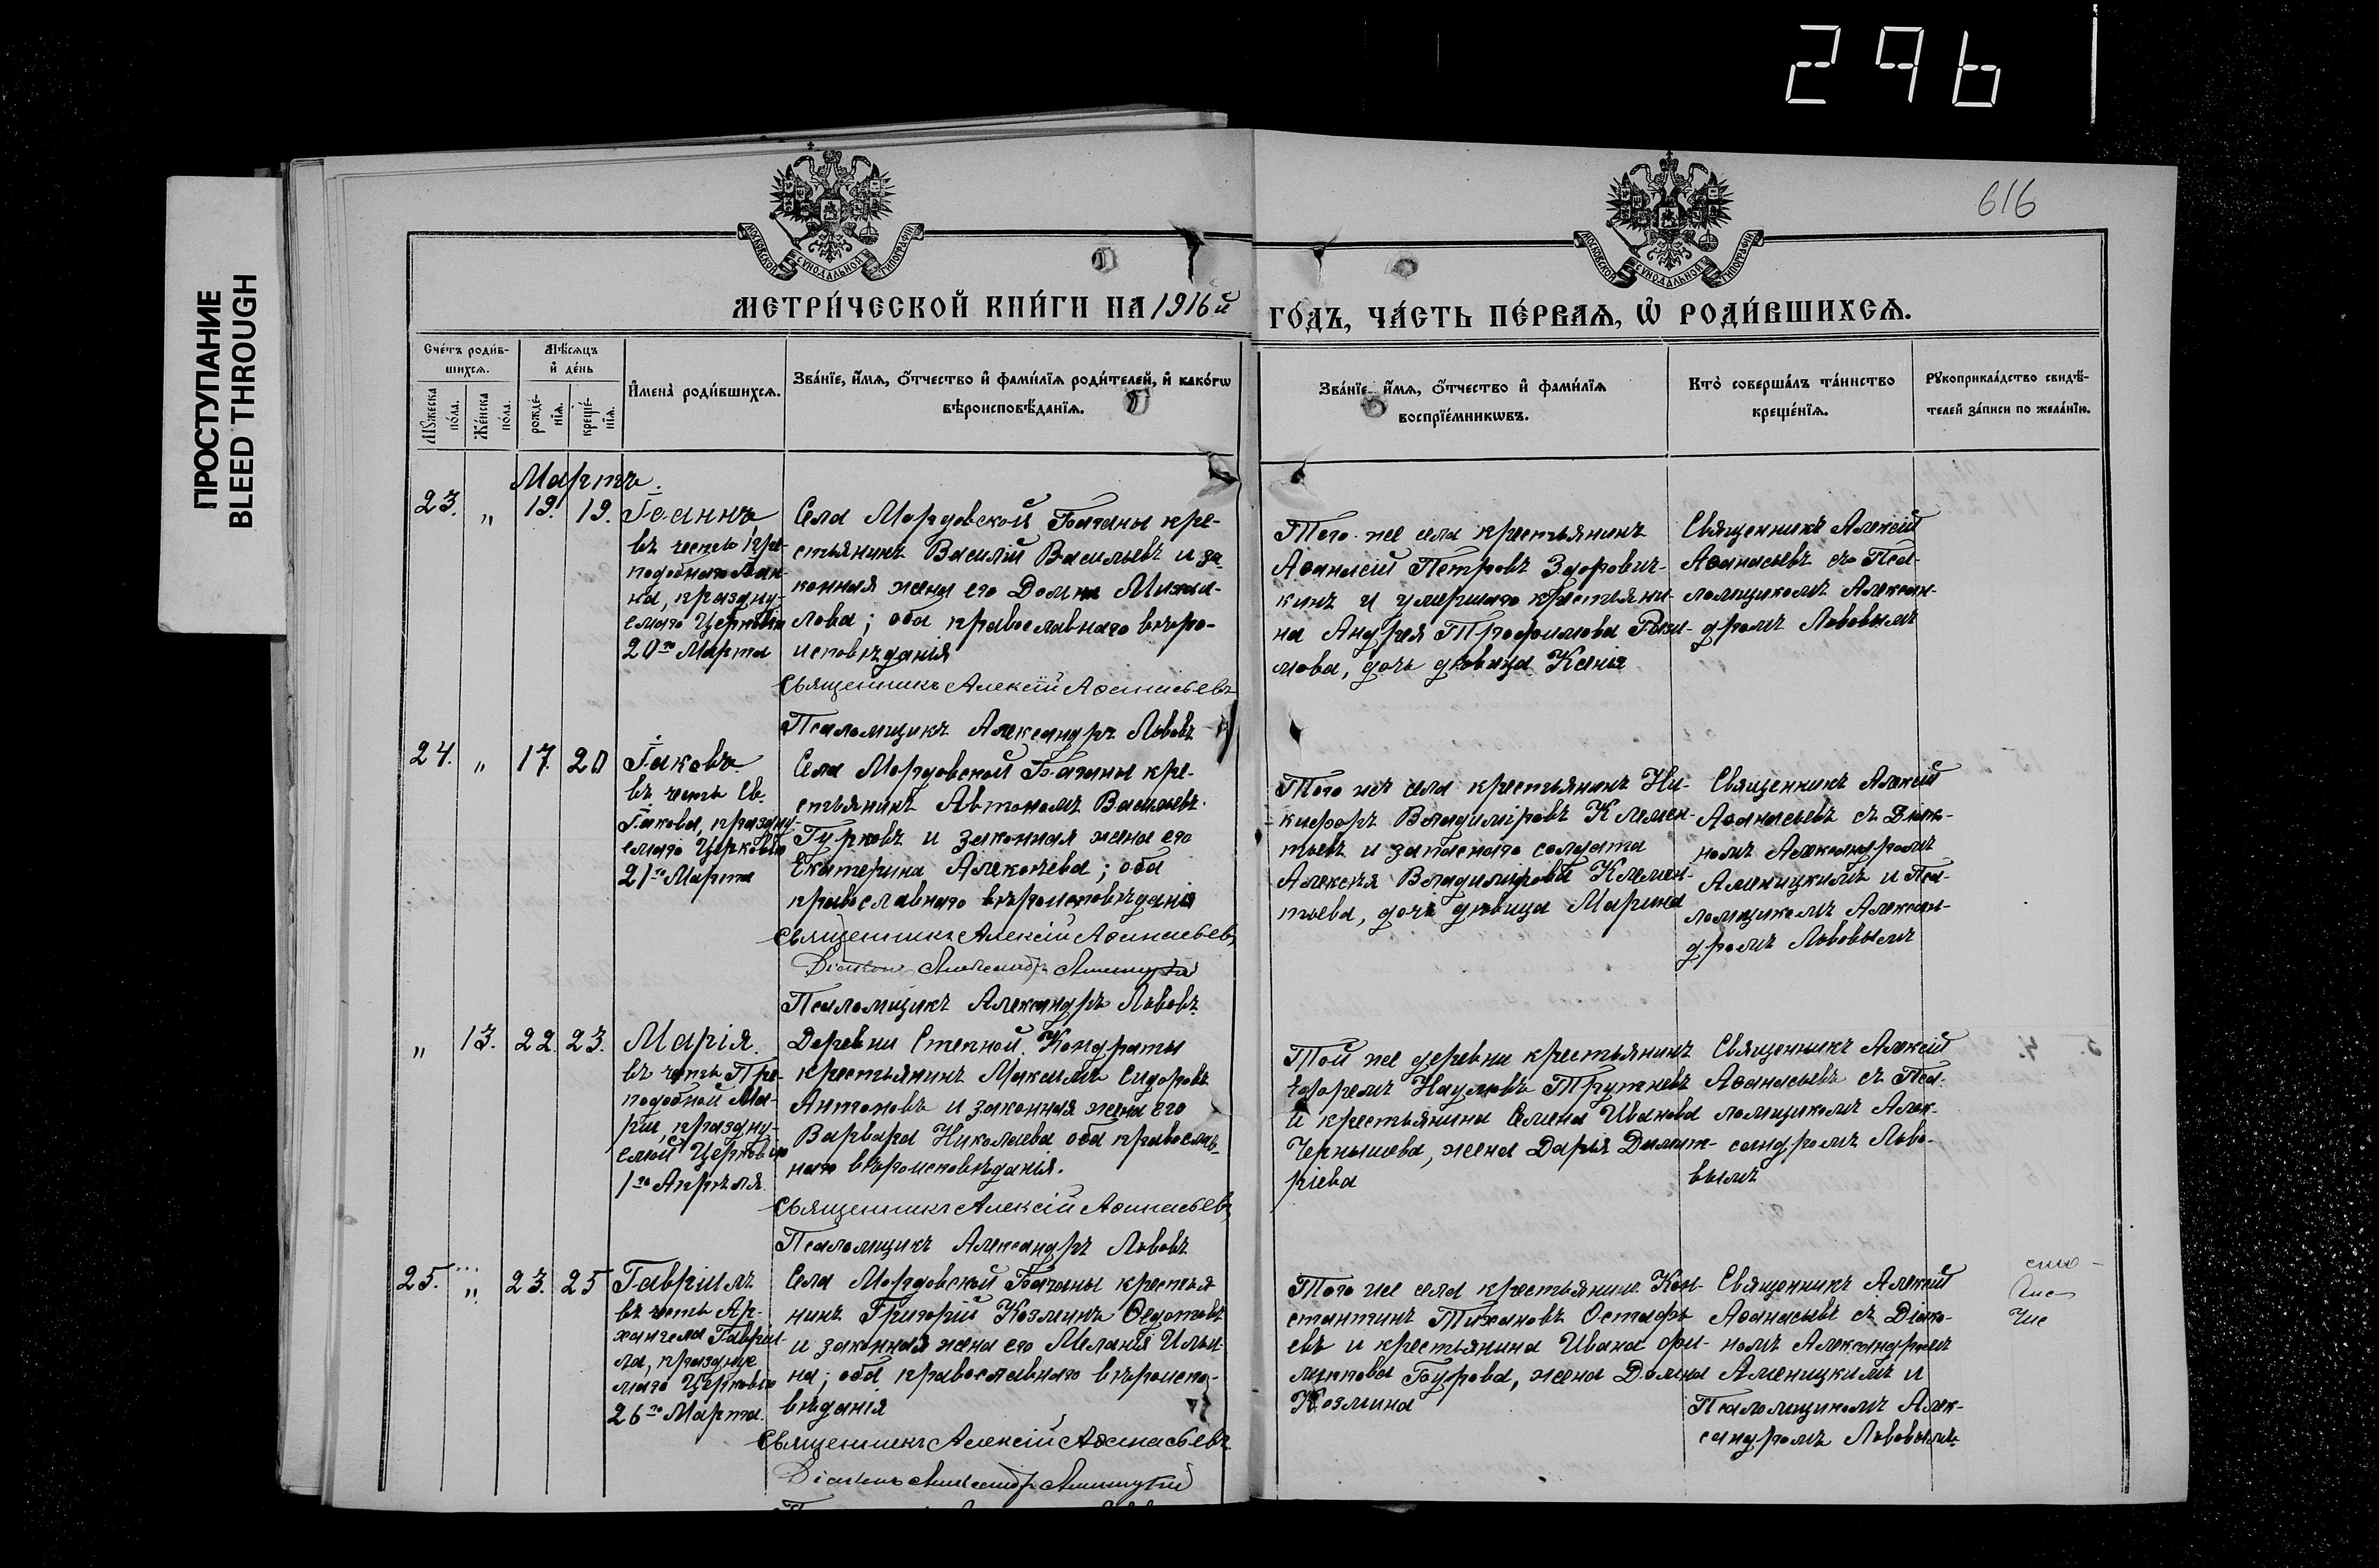 296
ПРОСТУПАНИЕ
BLEED THROUGH
616
МОСКОВСКОЙ СѴНОДАЛЬНОЙ ТИПОГРАФІИ
МОСКОВСКОЙ СѴНОДАЛЬНОЙ ТИПОГРАФІИ
МЕТРИ́ЧЕСКОЙ КНИ́ГИ НА 1916й
ГО́ДЪ, ЧА́СТЬ ПЕ́РВАЯ, Ѡ҆ РОДИ́ВШИХСЯ.
Сче́тъ роди́в-
шихся.
Мѣ́сяцъ
и҆ де́нь
Мꙋ́жеска
по́ла.
Же́нска
по́ла.
рожде́-
нїя.
креще́-
нїя.
И҆мена̀ роди́вшихся.
Зва́нїе, и҆́мя, ѻ҆́тчество и҆ фами́лїя роди́телей, и҆ како́гѡ
вѣроисповѣ́данїя.
Зва́нїе, и҆́мя, ѻ҆́тчество и҆ фами́лїя
воспрїе́мникѡвъ.
Кто̀ соверша́лъ та́инство
креще́нїя.
Рꙋкоприкла́дство свидѣ́-
телей за́писи по жела́нїю.
Мартъ.
23. „ 19. 19. Іоаннъ
въ честь пре-
подобнаго Іоан-
на, праздну-
емаго Церковію
20го Марта
Села Мордовской кре-
стьянинъ Василій Васильевъ и за-
конная жена его Домна Михаи-
лова; оба православнаго вѣро-
исповѣданія
Священникъ Алексій Аѳанасьевъ
Псаломщикъ Александръ Львовъ
Того же села крестьянинъ
Аѳанасій Петровъ
кинъ и умершаго крестьяни-
на Андрея Трофимова
мова, дочь дѣвица Ксенія
Священникъ Алексій
Аѳанасьевъ съ Пса-
ломщикомъ Алексан-
дромъ Львовымъ
24. „ 17. 20 Іаковъ
въ честь Св.
Іакова, праздну-
емаго Церковію
21го Марта
Села Мордовской кре-
стьянинъ Автономъ Васильевъ
Гурковъ и законная жена его
Екатерина Алексѣева; оба
православнаго вѣроисповѣданія
Священникъ Алексій Аѳанасьевъ
Діаконъ Александръ
Псаломщикъ Александръ Львовъ
Того же села крестьянинъ Ни-
кифоръ Владиміровъ Климен-
тьевъ и запаснаго солдата
Алексѣя Владимірова Климен-
тьева, дочь дѣвица Марина
Священникъ Алексій
Аѳанасьевъ съ Діако-
номъ Александромъ
Аменицкимъ и Пса-
ломщикомъ Алексан-
дромъ Львовымъ
„ 13. 22. 23. Марія
въ честь Пре-
подобной Ма-
ріи, праздну-
емой Церковію
1го Апрѣля
Деревни Степной Кондраты
крестьянинъ Максимъ Сидоровъ
Антоновъ и законная жена его
Варвара Николаева оба православ-
наго вѣроисповѣданія.
Священникъ Алексій Аѳанасьевъ
Псаломщикъ Александръ Львовъ
Той же деревни крестьянинъ
Ефремъ Наумовъ Трутневъ
и крестьянина Семена Иванова
Чернышева, жена Дарья Димит-
ріева
Священникъ Алексій
Аѳанасьевъ съ Пса-
ломщикомъ Алек-
сандромъ Льво-
вымъ
25. „ 23. 25 Гавріилъ
въ честь Ар-
хангела Гавріи-
ла, праздуе
маго Церковію
26го Марта
Села Мордовской крестья
нинъ Григорій Козминъ Ѳедотовъ
и законная жена его Меланія Ильи-
на; оба православнаго вѣроиспо-
вѣданія
Священникъ Алексій Аѳанасьевъ
Діаконъ Александръ
Того же села крестьянинъ Кон-
стантинъ Тихановъ Остафь
евъ и крестьянина Ивана Фи-
липпова жена Домна
Козмина
Священникъ Алексій
Аѳанасьевъ съ Діако-
номъ Александромъ
Аменицкимъ и
Псаломщикомъ Алек-
сандромъ Львовымъ